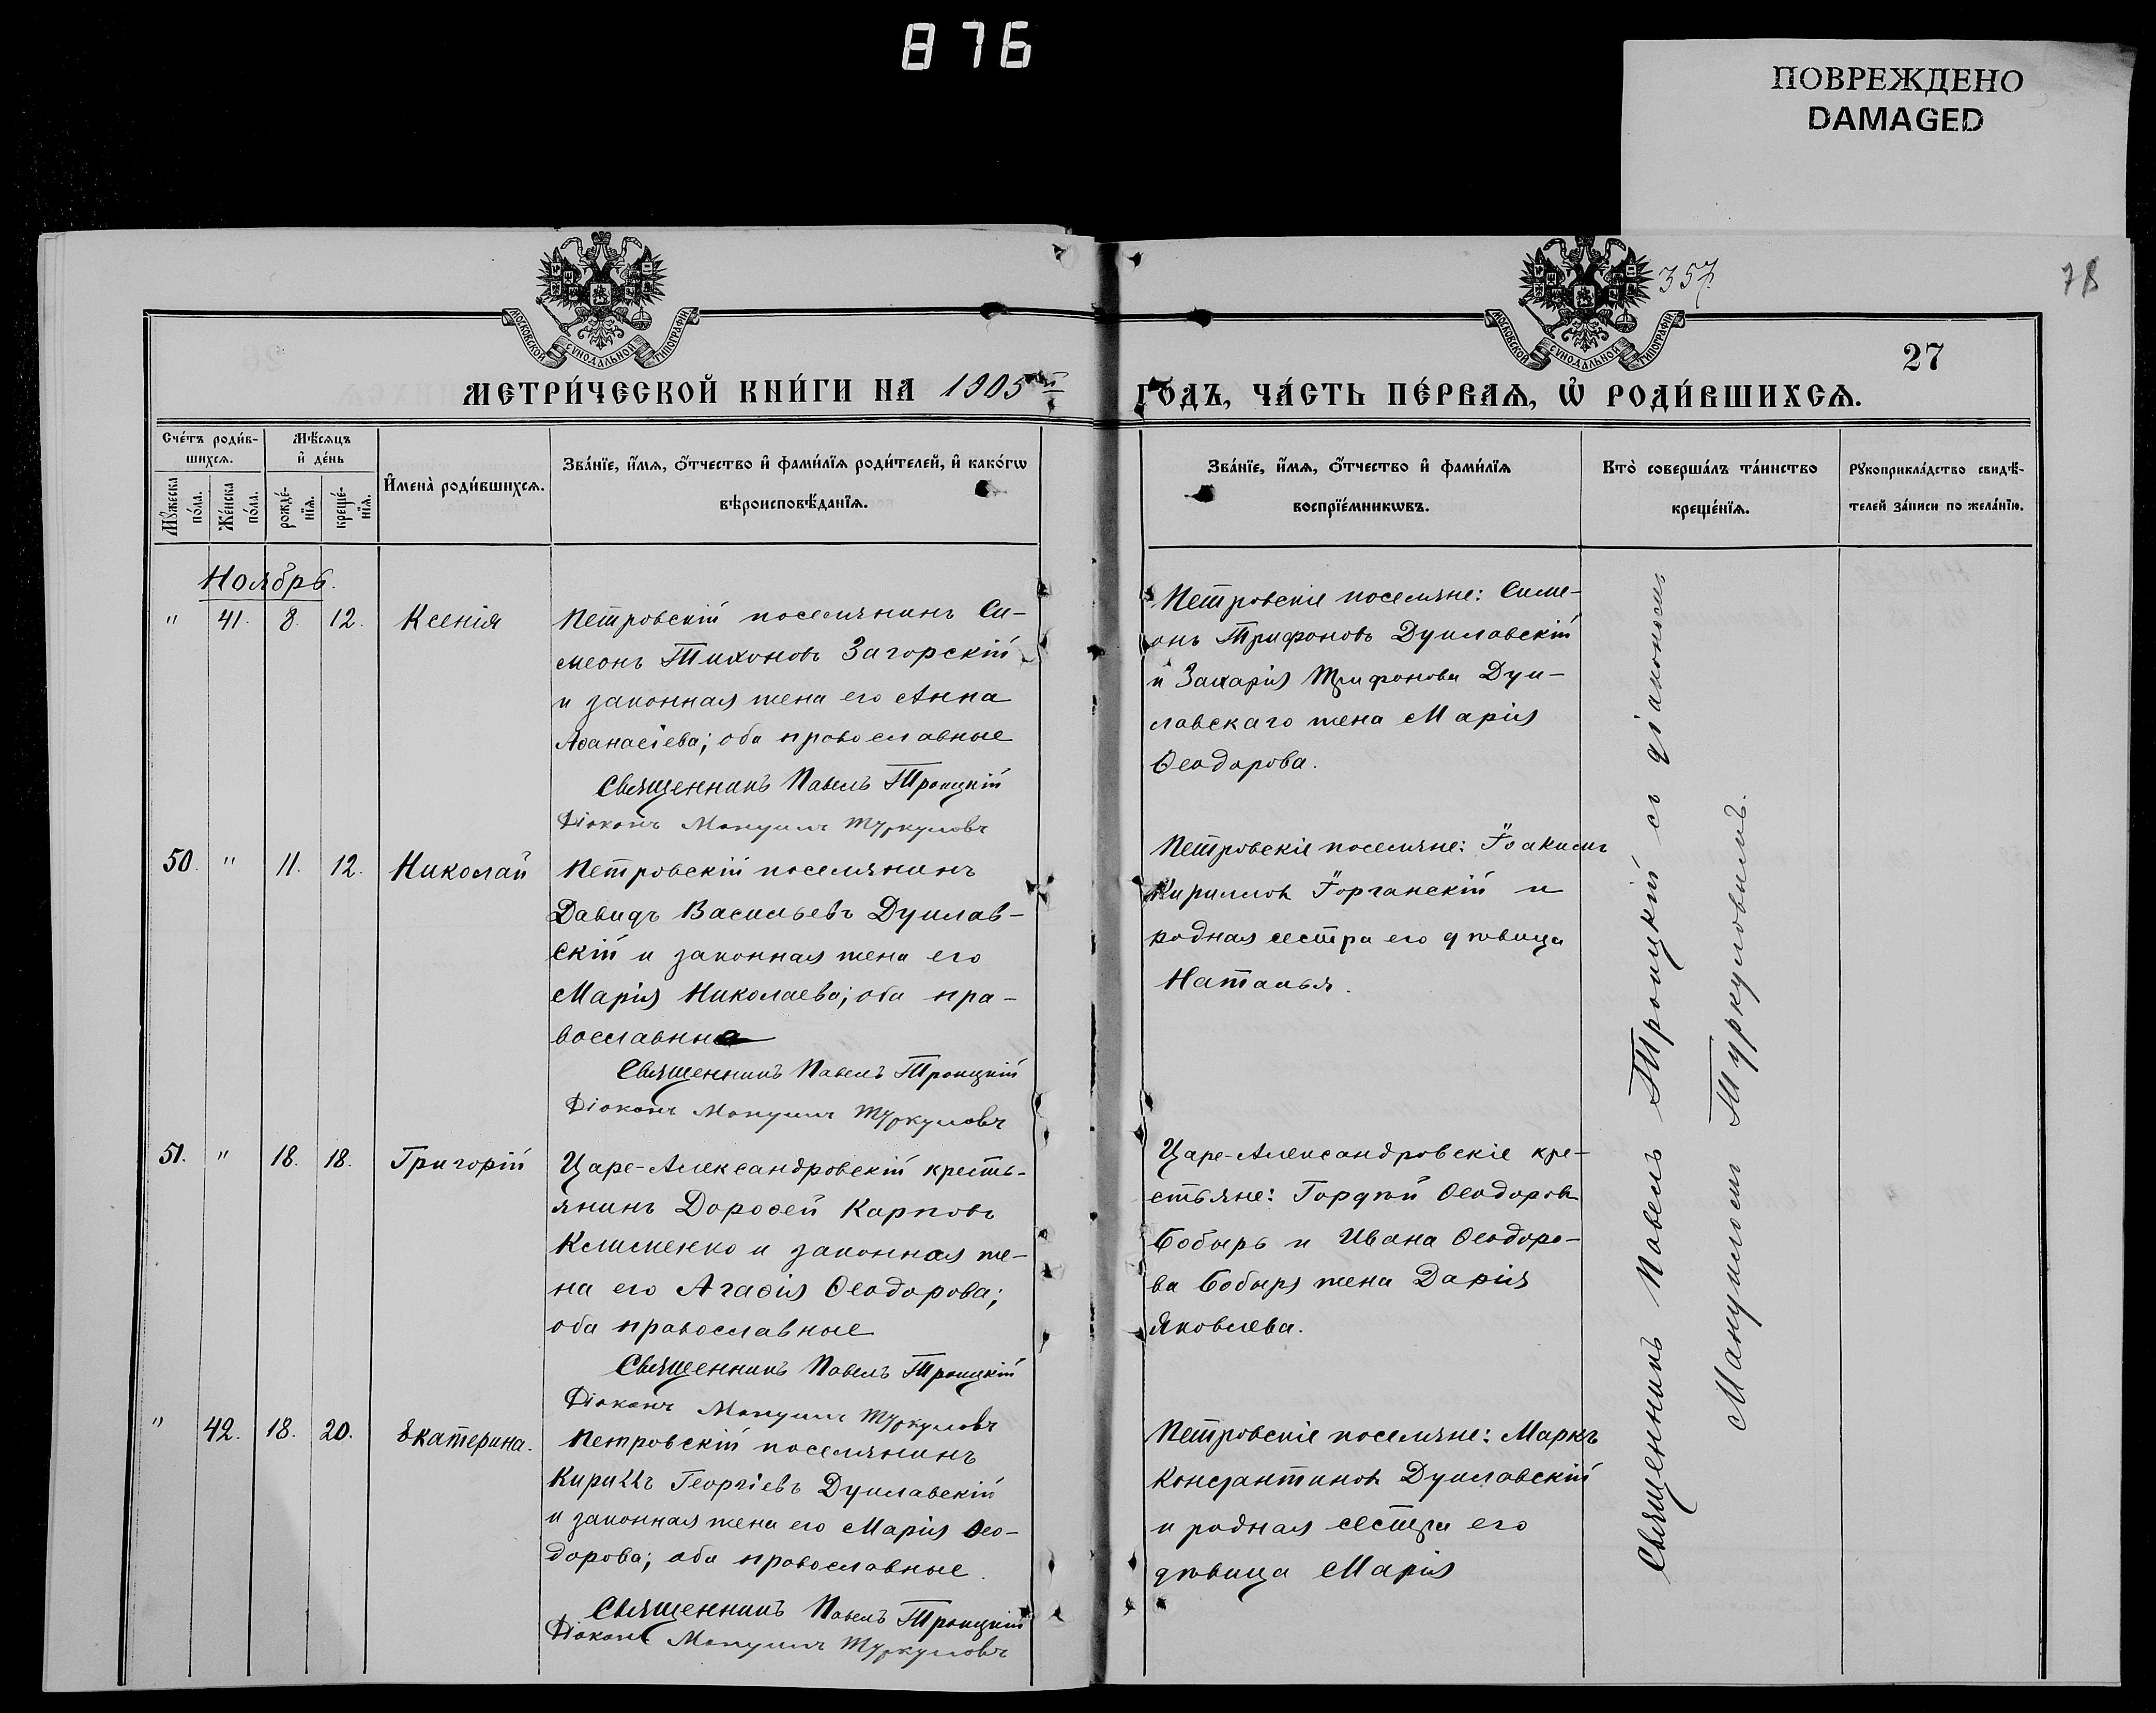 876
ПОВРЕЖДЕНО
DAMAGED
357
78
27
МОСКОВСКОЙ СѴНОДАЛЬНОЙ ТИПОГРАФІИ
МОСКОВСКОЙ СѴНОДАЛЬНОЙ ТИПОГРАФІИ
МЕТРИ́ЧЕСКОЙ КНИ́ГИ НА 1905 ый
ГОДЪ, ЧА́СТЬ ПЕ́РВАѦ, Ѡ҆ РОДИ́ВШИХСѦ.
Сче́тъ роди́в-
шихсѧ.
Мѣ́сѧцъ
и҆ де́нь
Мꙋ́жеска
по́ла.
Же́нска
по́ла.
рожде́-
нїѧ.
креще́-
нїѧ.
И҆мена̀ роди́вшихсѧ.
Зва́нїе, и҆́мѧ, ѻ҆́тчество и҆ фами́лїѧ роди́телей, и҆ како́гѡ
вѣроисповѣ́данїѧ.
Зва́нїе, и҆́мѧ, ѻ҆́тчество и҆ фами́лїѧ
воспрїе́мникѡвъ.
Кто̀ соверша́лъ та́инство
креще́нїѧ.
Рꙋкоприкла́дство свидѣ́-
телей за́писи по жела́нїю.
Ноябрь.
" 41. 8. 12. Ксенія
Петровскій поселянинъ Си-
меонъ Тихоновъ Загорскій
и законная жена его Анна
Аѳанасіева; оба православные
Священникъ Павелъ Троицкій
Діаконъ Мануилъ Туркуловъ
Петровскіе поселяне: Симе-
онъ Трифоновъ Дуилавскій
и Захарія Трифонова Дуи-
лавскаго жена Марія
Ѳеодорова.
50. " 11. 12. Николай
Петровскій поселянинъ
Давидъ Васильевъ Дуилав-
скій и законная жена его
Марія Николаева; оба пра-
вославны
Священникъ Павелъ Троицкій
Діаконъ Мануилъ Туркуловъ
Петровскіе поселяне: Іоакимъ
Кирилловъ Горганскій и
родная сестра его дѣвица
Наталья.
51. " 18. 18. Григорій
Царе-Александровскій кресть-
янинъ Дороѳей Карповъ
Клименко и законная же-
на его Агаѳія Ѳеодорова;
оба православные
Священникъ Павелъ Троицкій
Діаконъ Мануилъ Туркуловъ
Царе-Александровскіе кре-
стьяне: Гордѣй Ѳеодоровъ
Бобырь и Ивана Ѳеодоро-
ва Бобыря жена Дарія
Яковлева.
" 42. 18. 20. Екатерина.
Петровскій поселянинъ
Кириллъ Георгіевъ Дуилавскій
и законная жена его Марія Ѳео-
дорова; оба православные.
Священникъ Павелъ Троицкій
Діаконъ Мануилъ Туркуловъ
Петровскіе поселяне: Маркъ
Константиновъ Дуилавскій
и родная сестра его
дѣвица Марія
Священникъ Павелъ Троицкій съ діакономъ
Мануиломъ Туркуловымъ.